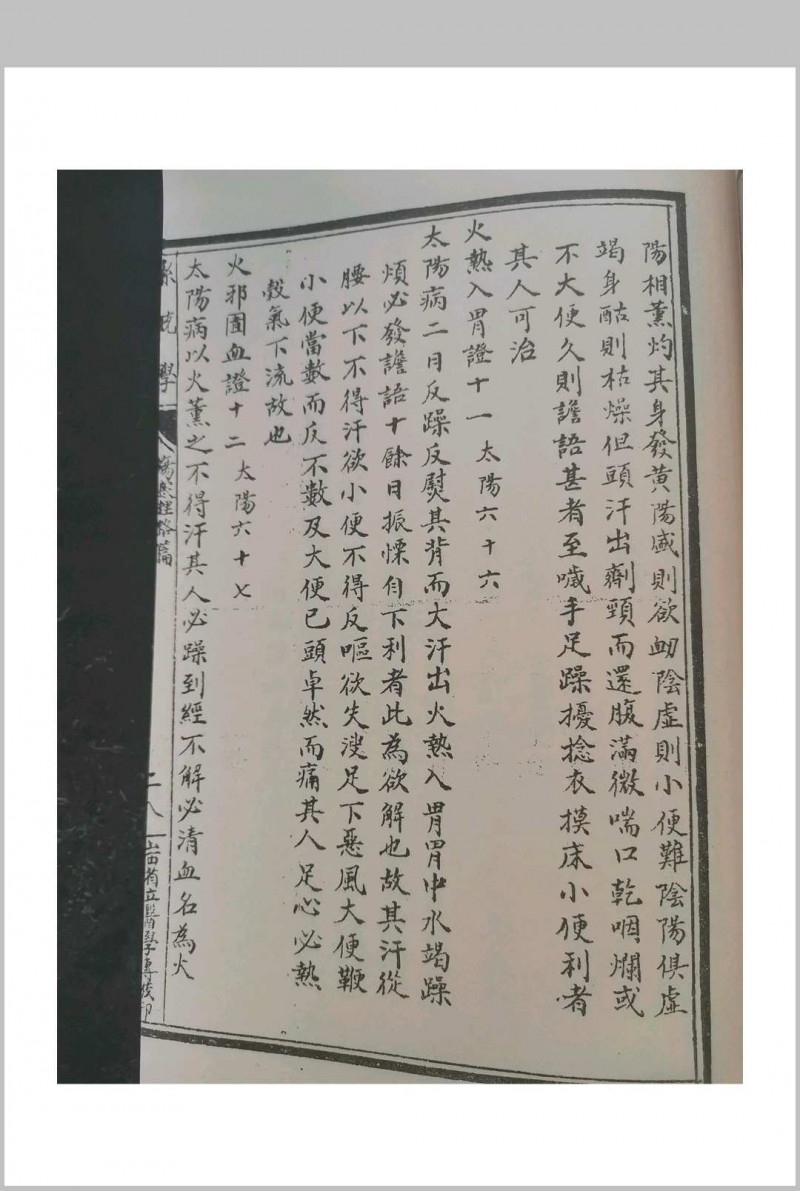 陽相薰灼其身發黄陽盛則欲衂陰虛則小便難陰陽俱虛
竭身酤則枯燥但頭汗出劑頸而還腹滿微喘口乾咽爛或
不大便久則譫語甚者至噦手足躁擾捻衣摸床小便利者
其人可治
火熱入胃證十一 太陽六十六
太陽病二日反躁反熨其背而大汗出火熱入胃胃中水竭躁
煩必發譫語十餘日振慄自下利者此為欲解也故其汗從
腰以下不得汗欲小便不得反嘔欲失溲足下惡風大便鞕
小便當數而反不數及大便已頭卓然而痛其人足心必熱
穀氣下流故也
火邪圊血證十二 太陽六十七
太陽病以火薰之不得汗其人必躁到經不解必清血名為火
學 傷寒 篇 二八 省立醫學專校印